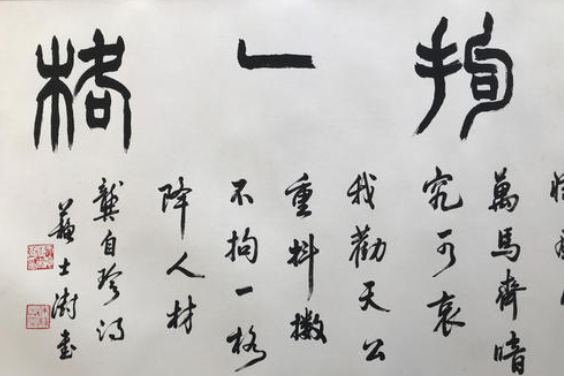 拘一格
萬馬齊暗
究可哀
我勸天公
重抖擻
不拘一格
降人材
龔自珍詩
蘇士澍書